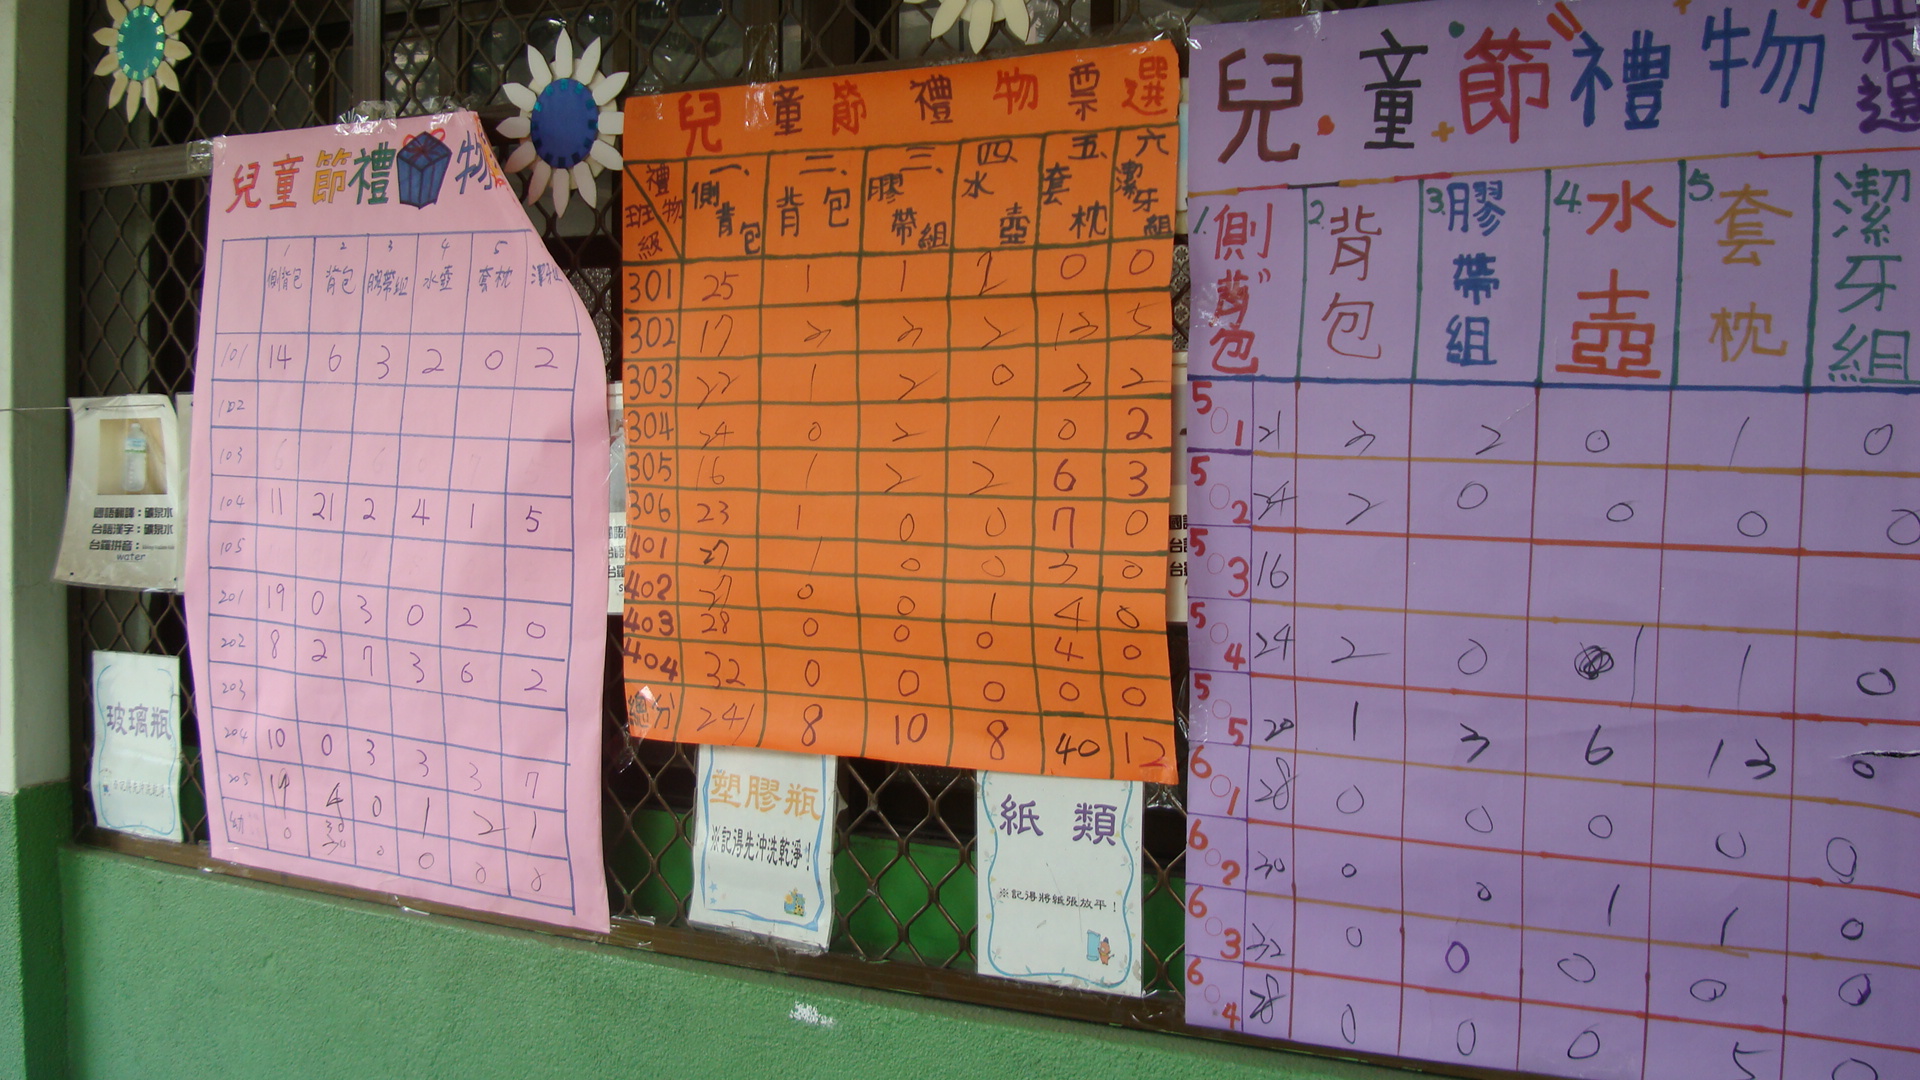 兒童節禮物
1 2 3 4 5
側背包 背包 膠帶組 水壺 套枕 潔牙組
101 14 6 3 2 0 2
102
103
104 11 21 2 4 1 5
105
201 19 0 3 0 2 0
202 8 2 7 3 6 2
203
204 10 0 3 3 3 7
205 19 4 0 1 2 1
幼 0 30 0 0 0 0
兒童節禮物票選
禮物 班級 一、側背包 二、背包 三、膠帶組 四、水壺 五、套枕 六 潔牙組
301 25 1 1 2 0 0
302 17 2 2 2 13 5
303 22 1 2 0 3 2
304 24 0 2 1 0 2
305 16 1 2 2 6 3
306 23 1 0 0 7 0
401 27 1 0 0 3 0
402 27 0 0 1 4 0
403 28 0 0 0 4 0
404 32 0 0 0 0 0
總分 241 8 10 8 40 12
兒童節禮物票選
1.側背包 2.背包 3.膠帶組 4.水壺 5.套枕 潔牙組
501 21 3 2 0 1 0
502 24 2 0 0 0 0
503 16
504 24 2 0 1 1 0
505 20 1 3 6 13 0
601 28 0 0 0 0 0
602 30 0 0 1 1 0
603 32 0 0 0 0 0
604 28 0 0 0 5 0
國語翻譯：礦泉水
台語漢字：礦泉水
台羅拼音：
water
玻璃瓶
塑膠瓶
※記得先沖洗乾淨！
紙類
※記得將紙張放平！